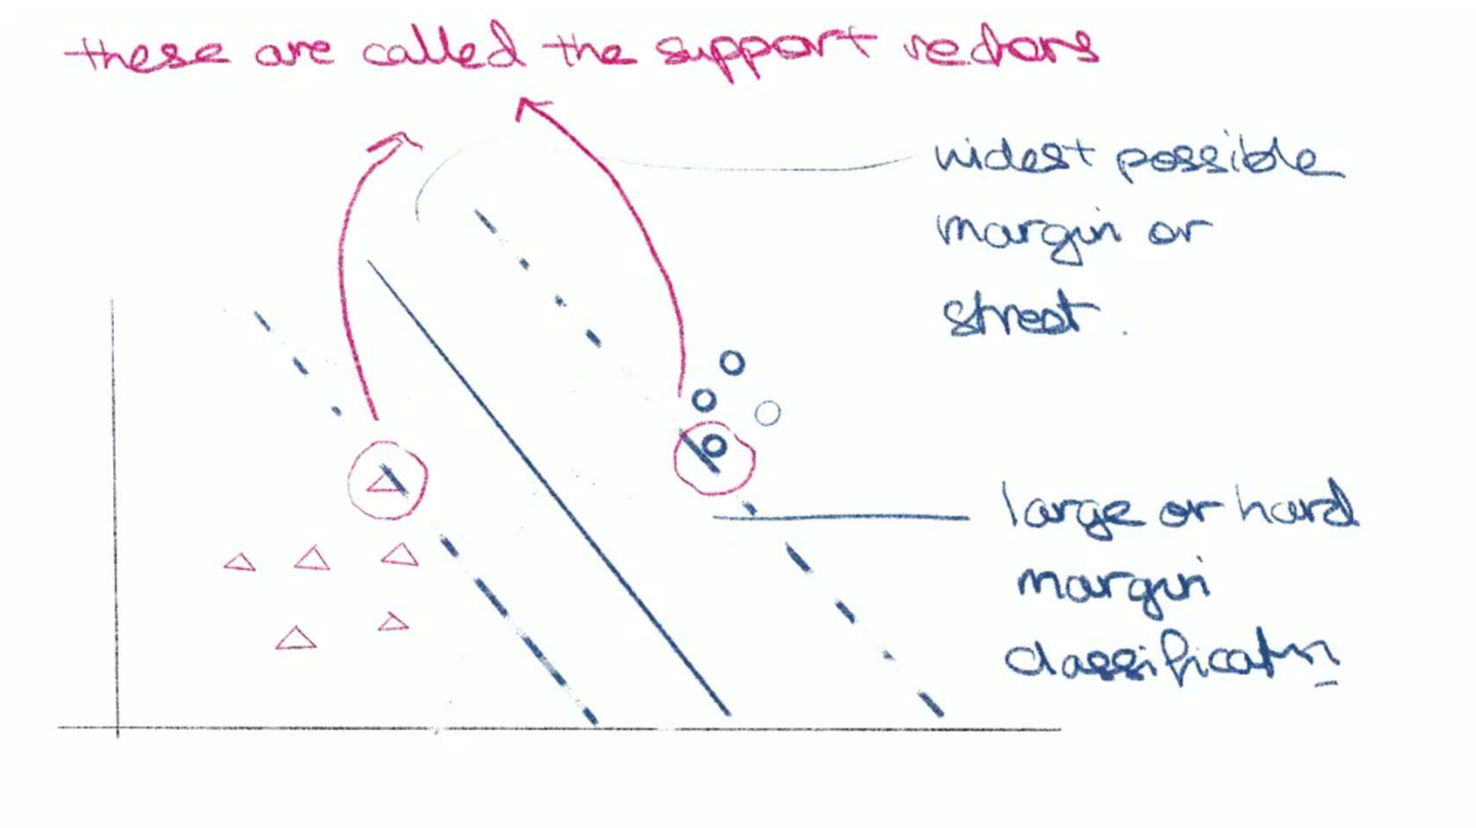 these are called the support vectors
widest possible
margin or
street.
large or hard
margin
classification